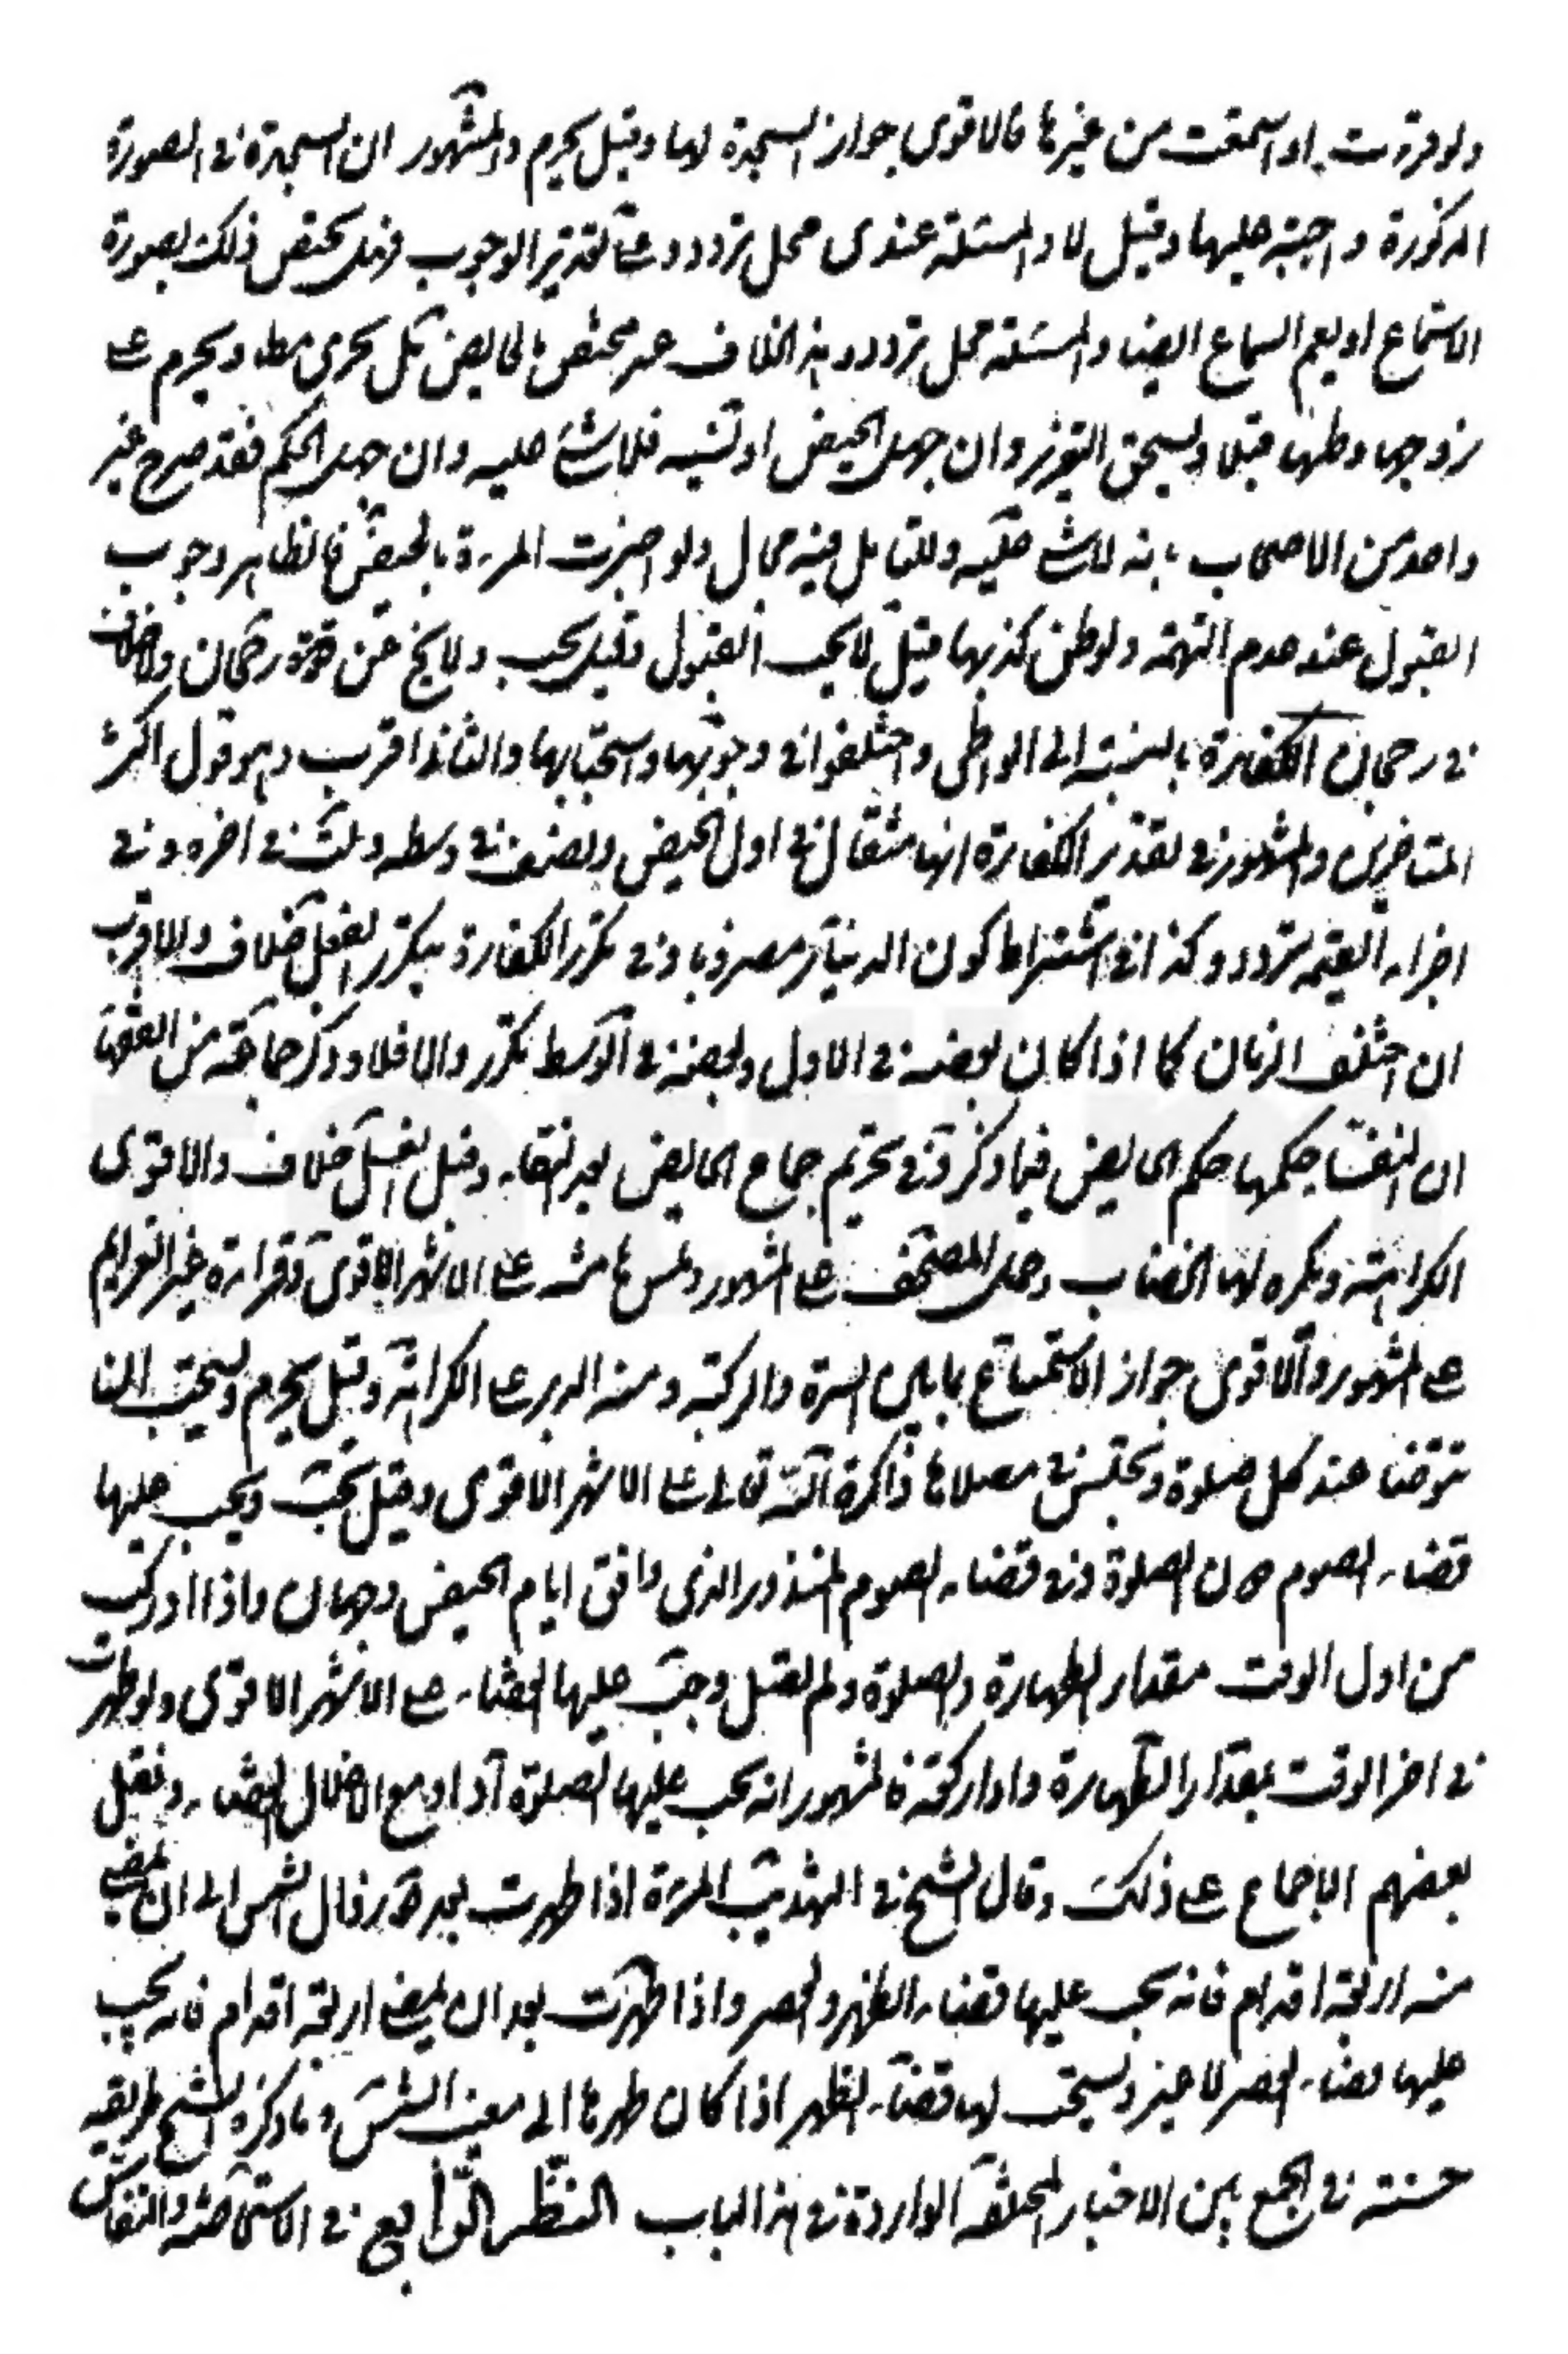 ولو قرءت او استمعت من غيرها فالاقوى جواز السجدة لها وقيل يحرم والمشهور ان السجدة في الصورة
المذكورة واجبة عليها وقيل لا والمسئلة عندي محل تردد وعلى تقدير الوجوب فهل يختص ذلك بصورة
الاستماع او يعم السماع ايضا والمسئلة محل تردد وهذا الخلاف غير مختص بالحايض بل يجري مطا ويحرم على
زوجها وطئها قبلا ويستحق التعزير وان جهل الحيض او نسيه فلا شئ عليه وان جهل الحكم فقد صرح غير
واحد من الاصحاب بانه لا شئ عليه وللتامل فيه مجال ولو اخبرت المرءة بالحيض فالظاهر وجوب
القبول عند عدم التهمة ولو ظن كذبها قيل لا يجب القبول وقيل يجب ولا يخ عن قوة رجحان ولا خلاف
في رجحان الكفارة بالنسبة الى الواطي واختلفوا في وجوبها واستحبابها والثاني اقرب وهو قول اكثر
المتاخرين والمشهور في تقدير الكفارة انها مثقال في اول الحيض ونصف في وسطه وثلث في اخره وفي
اجزاء القيمة تردد وكذا في اشتراط كون الدينار مضروبا وفي تكرر الكفارة بتكرر الفعل خلاف والاقرب
ان اختلف الزمان كما اذا كان بعضه في الاول وبعضه في الوسط تكرر والا فلا وذكر جماعة من الفقهاء
ان النفساء حكمها حكم الحايض فيما ذكر وفي تحريم جماع الحايض بعد النقاء وقبل الغسل خلاف والاقوى
الكراهة ويكره لها الخضاب وحمل المصحف على المشهور ولمس هامشه على الاشهر الاقوى وقراءة غير العزايم
على المشهور والاقوى جواز الاستمتاع بما بين السرة والركبة ومنه الدبر على الكراهة وقيل يحرم ويستحب لها
تتوضا عند كل صلوة وتجلس في مصلاها ذاكرة الله تعالى على الاشهر الاقوى وقيل يجب ويجب عليها
قضاء الصوم دون الصلوة وفي قضاء الصوم المنذور الذي وافق ايام الحيض وجهان واذا ادركت
من اول الوقت مقدار الطهارة والصلوة ولم تصل وجب عليها القضاء على الاشهر الاقوى ولو طهرت
في اخر الوقت بمقدار الطهارة واداء ركعة فالمشهور انه يجب عليها الصلوة اداء ومع الاخلال القضاء ونقل
بعضهم الاجماع على ذلك وقال الشيخ في التهذيب المرءة اذا طهرت بعد زوال الشمس الى ان يمضي
منه اربعة اقدام فانه يجب عليها قضاء الظهر والعصر واذا طهرت بعد ان يمضي اربعة اقدام فانه يجب
عليها قضاء العصر لا غير ويستحب لها قضاء الظهر اذا كان طهرها الى مغيب الشمس وما ذكره الشيخ طريقة
حسنة في الجمع بين الاخبار المختلفة الواردة في هذا الباب النظر الرابع في الاستحاضة والنفاس